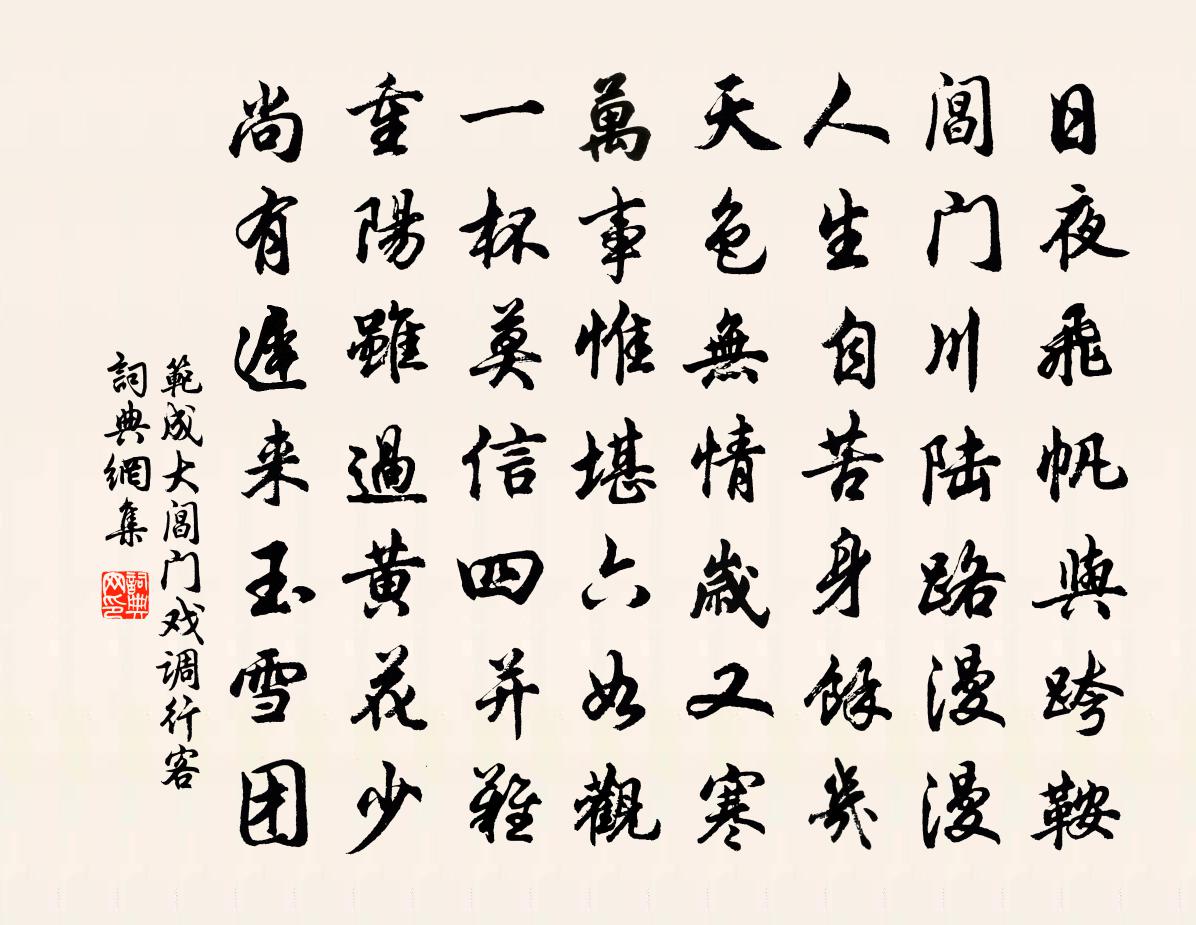 日夜飛帆與跨鞍
閶门川陆路漫漫
人生自苦身餘幾
天色無情歲又寒
萬事惟堪六如觀
一杯莫信四并難
重陽雖過黄花少
尚有遲来玉雪团
範成大閶门戏调行客
詞典網集
詞典网印